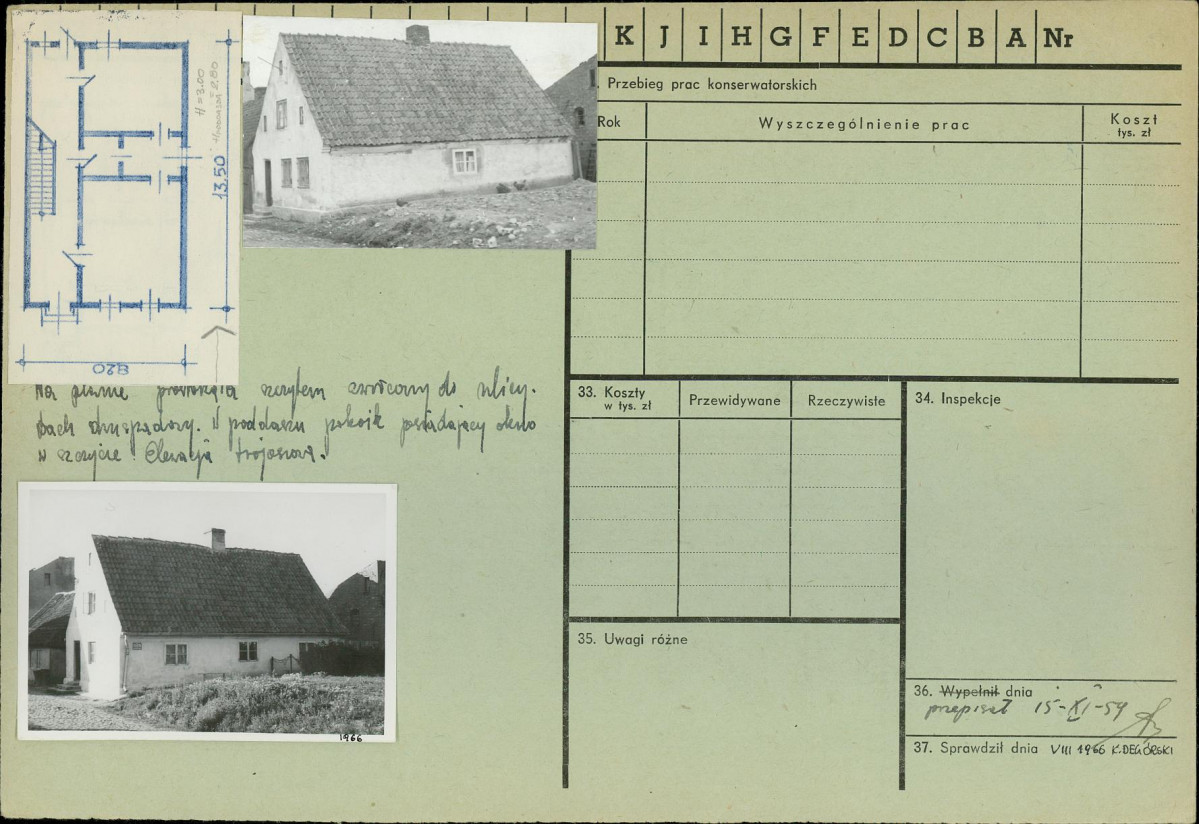 K J I H G F E D C B A Nr
Przebieg prac konserwatorskich
Rok
Wyszczególnienie prac
Koszt
tys. zł
H = 3.00
2.80
13,50
820
Na planie prostokąta szczytem zwrócony do ulicy.
Dach dwuspadowy. W poddaszu pokoik posiadający okno
w szczycie. Elewacja trójosiowa.
1966
33. Koszty
w tys. zł
Przewidywane
Rzeczywiste
34. Inspekcje
35. Uwagi różne
36. Wypełnił dnia
przepisał 15-XI-59
37. Sprawdził dnia VIII 1966 K. DEGÓRSKI